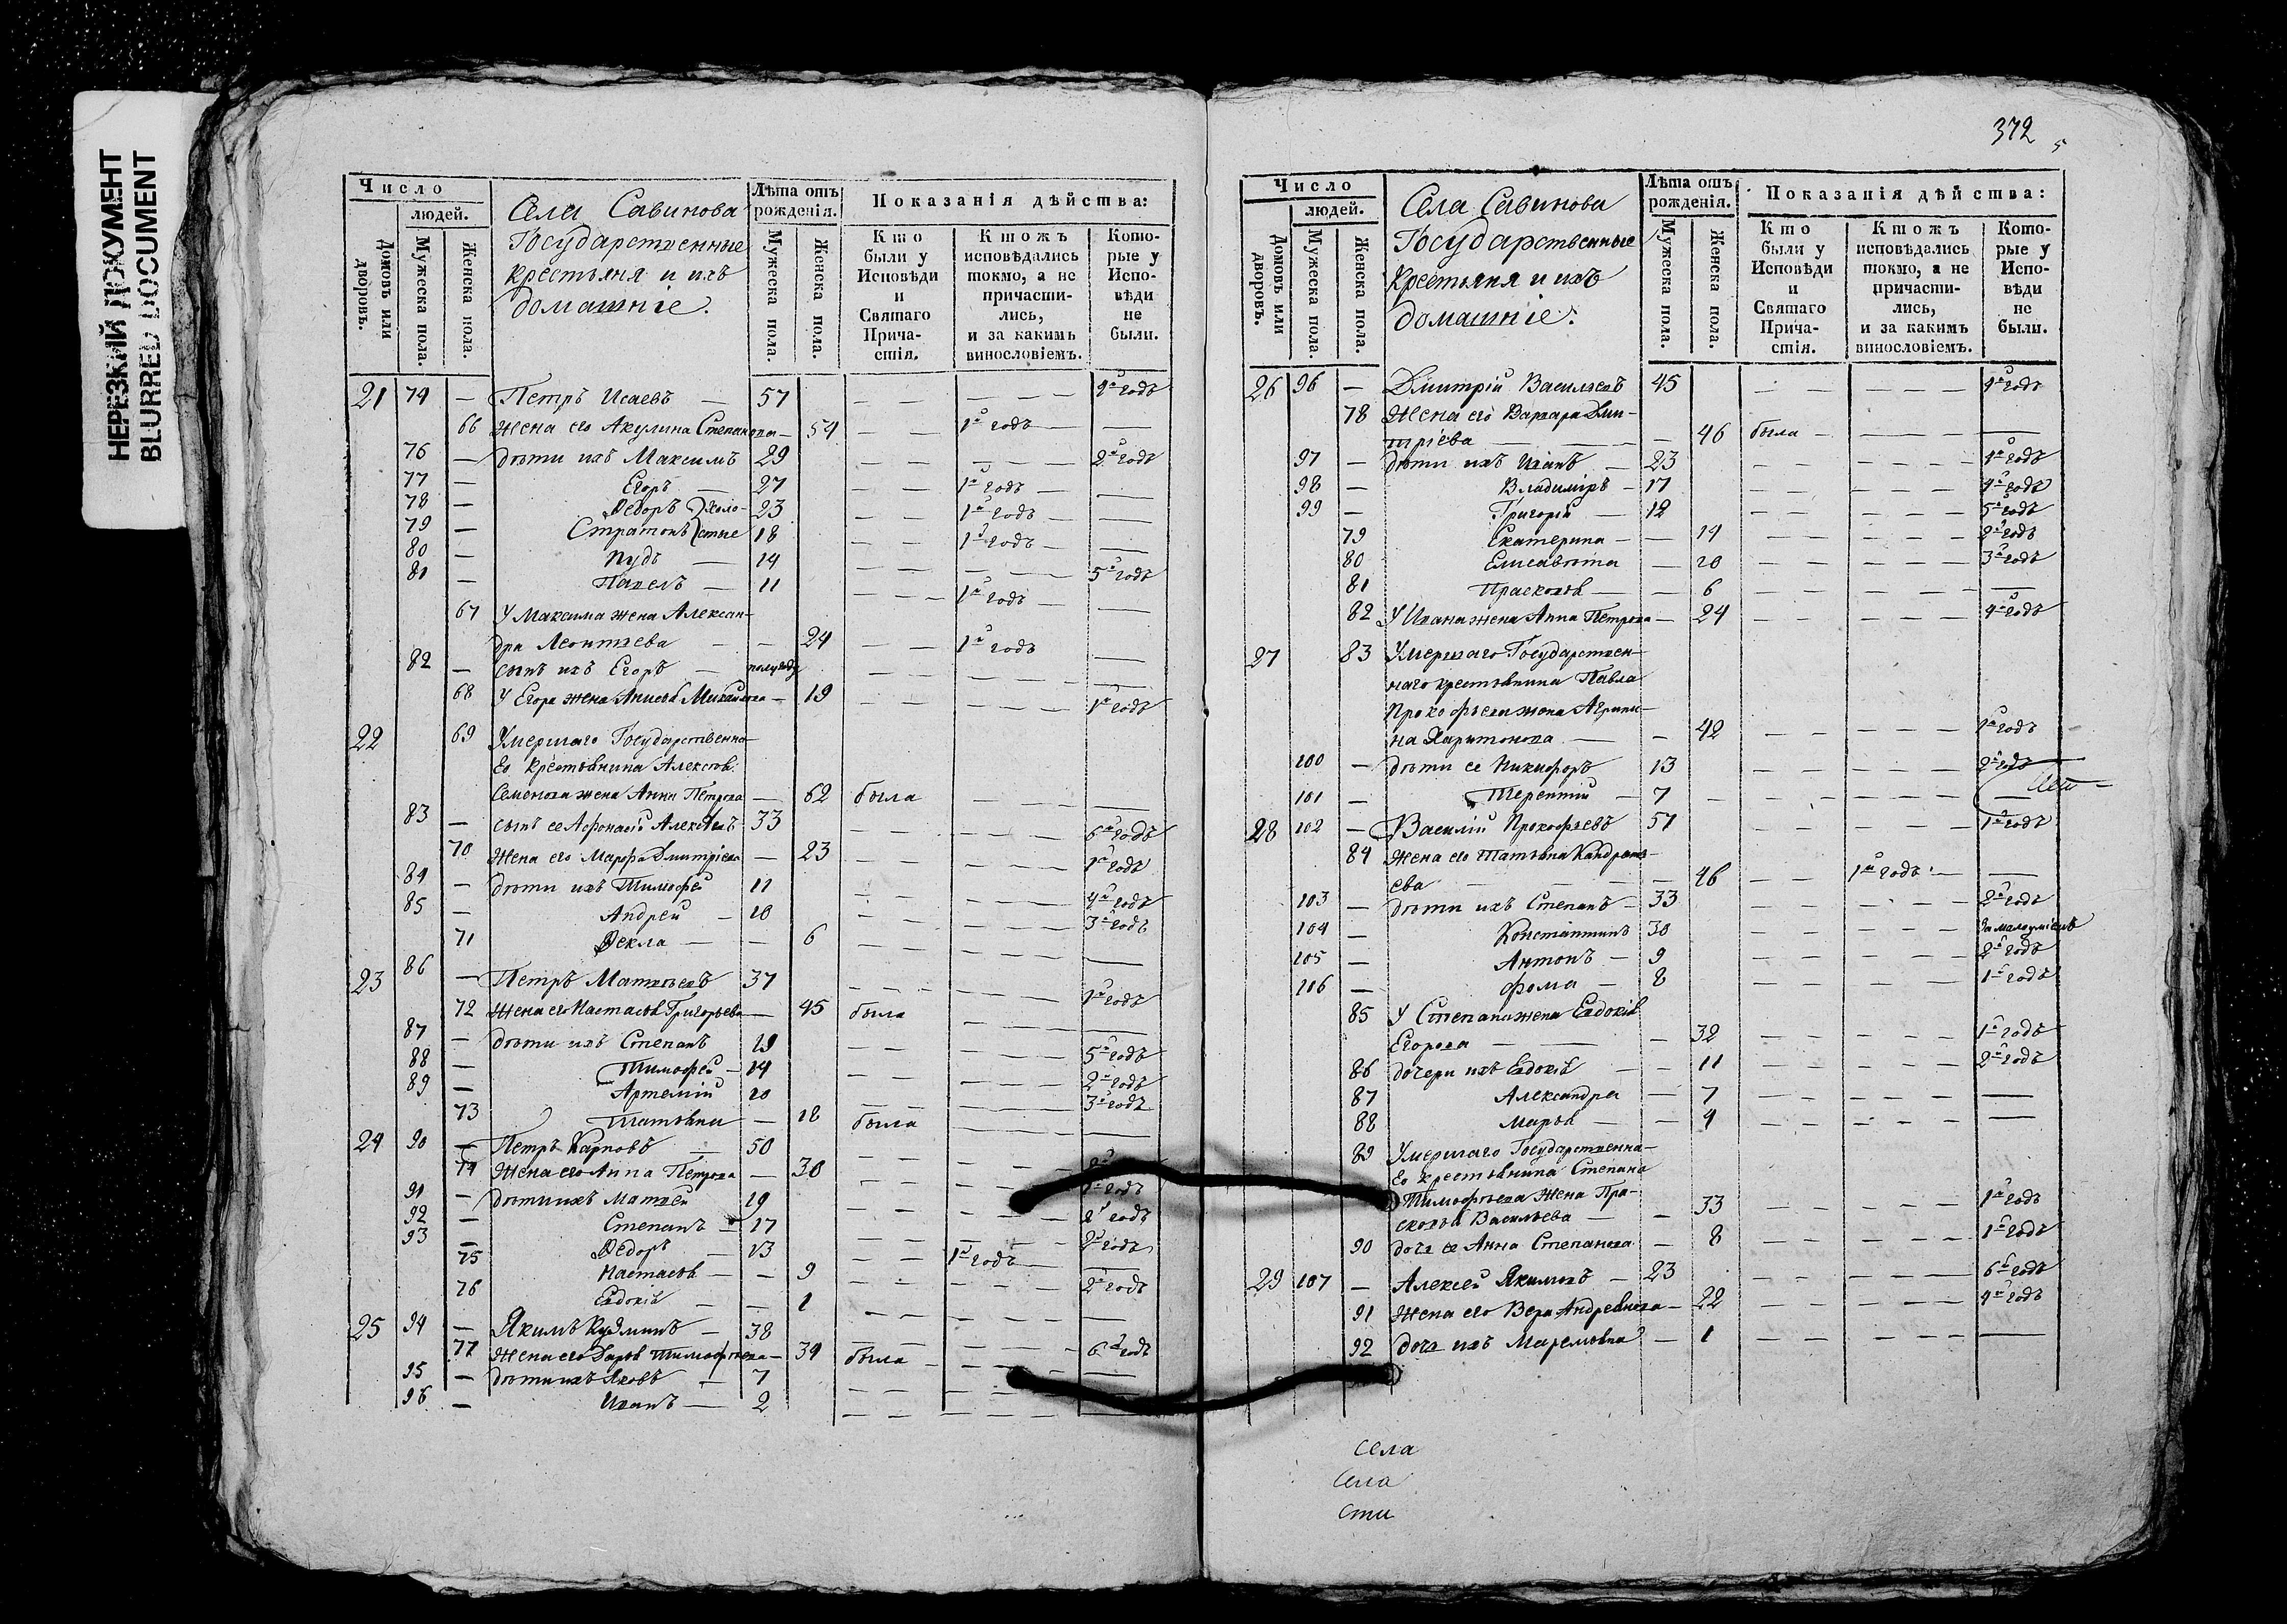 НЕРЕЗКИЙ ДОКУМЕНТ
BLURRED DOCUMENT
Число
людей.
Домовъ или дворовъ.
Мужеска пола.
Женска пола.
Села Савинова
Государственные
крестьяня и ихъ
домашніе.
Лѣта отъ рожденія.
Мужеска пола.
Женска пола.
Показанія дѣйства:
Кто были у Исповѣди и Святаго Причастія.
Ктожъ исповѣдались токмо, а не причастились, и за какимъ винословіемъ.
Которые у Исповѣди не были.
21 74 — Петръ Исаевъ — 57
66 жена его Акулина Степанова — 54 1й годъ
76 — дѣти ихъ Максимъ 29 2й годъ
77 — Егоръ — 27 1й годъ
78 — Ѳедоръ холо- 23 1й годъ
79 — Стратонъ стые 18 1й годъ
80 — Пудъ — 14 5й годъ
81 — Павелъ — 11 1й годъ
67 У Максима жена Алексан-
дра Леонтьева — 24 1й годъ
82 — сынъ ихъ Егоръ — полугоду
68 У Егора жена Анисья Михайлова — 19 1й годъ
22 69 Умершаго Государственна-
го крестьянина Алексѣя
Семенова жена Анна Петрова — 62 была
83 — сынъ ее Афонасій Алексѣевъ 33 6й годъ
70 жена его Марфа Дмитріева — 23 1й годъ
84 — дѣти ихъ Тимофей 11 4й годъ
85 — Андрей — 10 3й годъ
71 Ѳекла — 6
23 86 — Петръ Матвѣевъ 37 1й годъ
72 жена его Настасья Григорьева — 45 была
87 — дѣти ихъ Степанъ 19 5й годъ
88 — Тимофей — 14 2й годъ
89 — Артемій 10 3й годъ
73 Татьяна — 18 была
24 90 — Петръ Карповъ 50
74 жена его Анна Петрова — 30 годъ
91 — дѣти ихъ Матвей 19 годъ
92 — Степанъ — 17 2й годъ
93 — Ѳедоръ — 13 1й годъ
75 Настасья — 9 2й годъ
76 Евдокія — 1
25 94 — Якимъ Кузминъ — 38 6й годъ
77 жена его Дарья Тимофѣева — 34 была
95 — дѣти ихъ Яковъ — 7
96 — Иванъ — 2
372
5
Число
людей.
Домовъ или дворовъ.
Мужеска пола.
Женска пола.
Села Савинова
Государственные
крестьяня и ихъ
домашніе.
Лѣта отъ рожденія.
Мужеска пола.
Женска пола.
Показанія дѣйства:
Кто были у Исповѣди и Святаго Причастія.
Ктожъ исповѣдались токмо, а не причастились, и за какимъ винословіемъ.
Которые у Исповѣди не были.
26 96 — Дмитрій Васильевъ 45 4й годъ
78 жена его Варвара Дми-
тріева — 46 была
97 — дѣти ихъ Иванъ — 23 1й годъ
98 — Владиміръ — 17 4й годъ
99 — Григорій — 12 5й годъ
79 Екатерина — 14 2й годъ
80 Елисавѣта — 10 3й годъ
81 Прасковья — 6
82 У Ивана жена Анна Петрова — 24 4й годъ
27 83 Умершаго Государствен-
наго крестьянина Павла
Прокофьева жена Агрипи-
на Харитонова — 42 1й годъ
100 — дѣти ее Никифоръ 13 2й годъ
101 — Терентій — 7
28 102 — Василій Прокофьевъ 57 1й годъ
84 жена его Татьяна Кандрать-
ева — 46 1й годъ
103 — дѣти ихъ Степанъ — 33 2й годъ
104 — Константинъ 30 за малоуміемъ
105 — Антонъ — 9 2й годъ
106 — фома — 8 1й годъ
85 У Степана жена Евдокія
Егорова — 32 1й годъ
86 дочери ихъ Евдокія — 11 2й годъ
87 Александра — 7
88 Марья — 4
89 Умершаго Государственна-
го крестьянина Степана
Тимофѣева жена Пра-
сковья Васильева — 33 1й годъ
90 дочь ее Анна Степанова — 8 1й годъ
29 107 — Алексей Якимовъ — 23 6й годъ
91 жена его Вера Андреевнова — 22 4й годъ
92 дочь ихъ — 1
села
села
сти